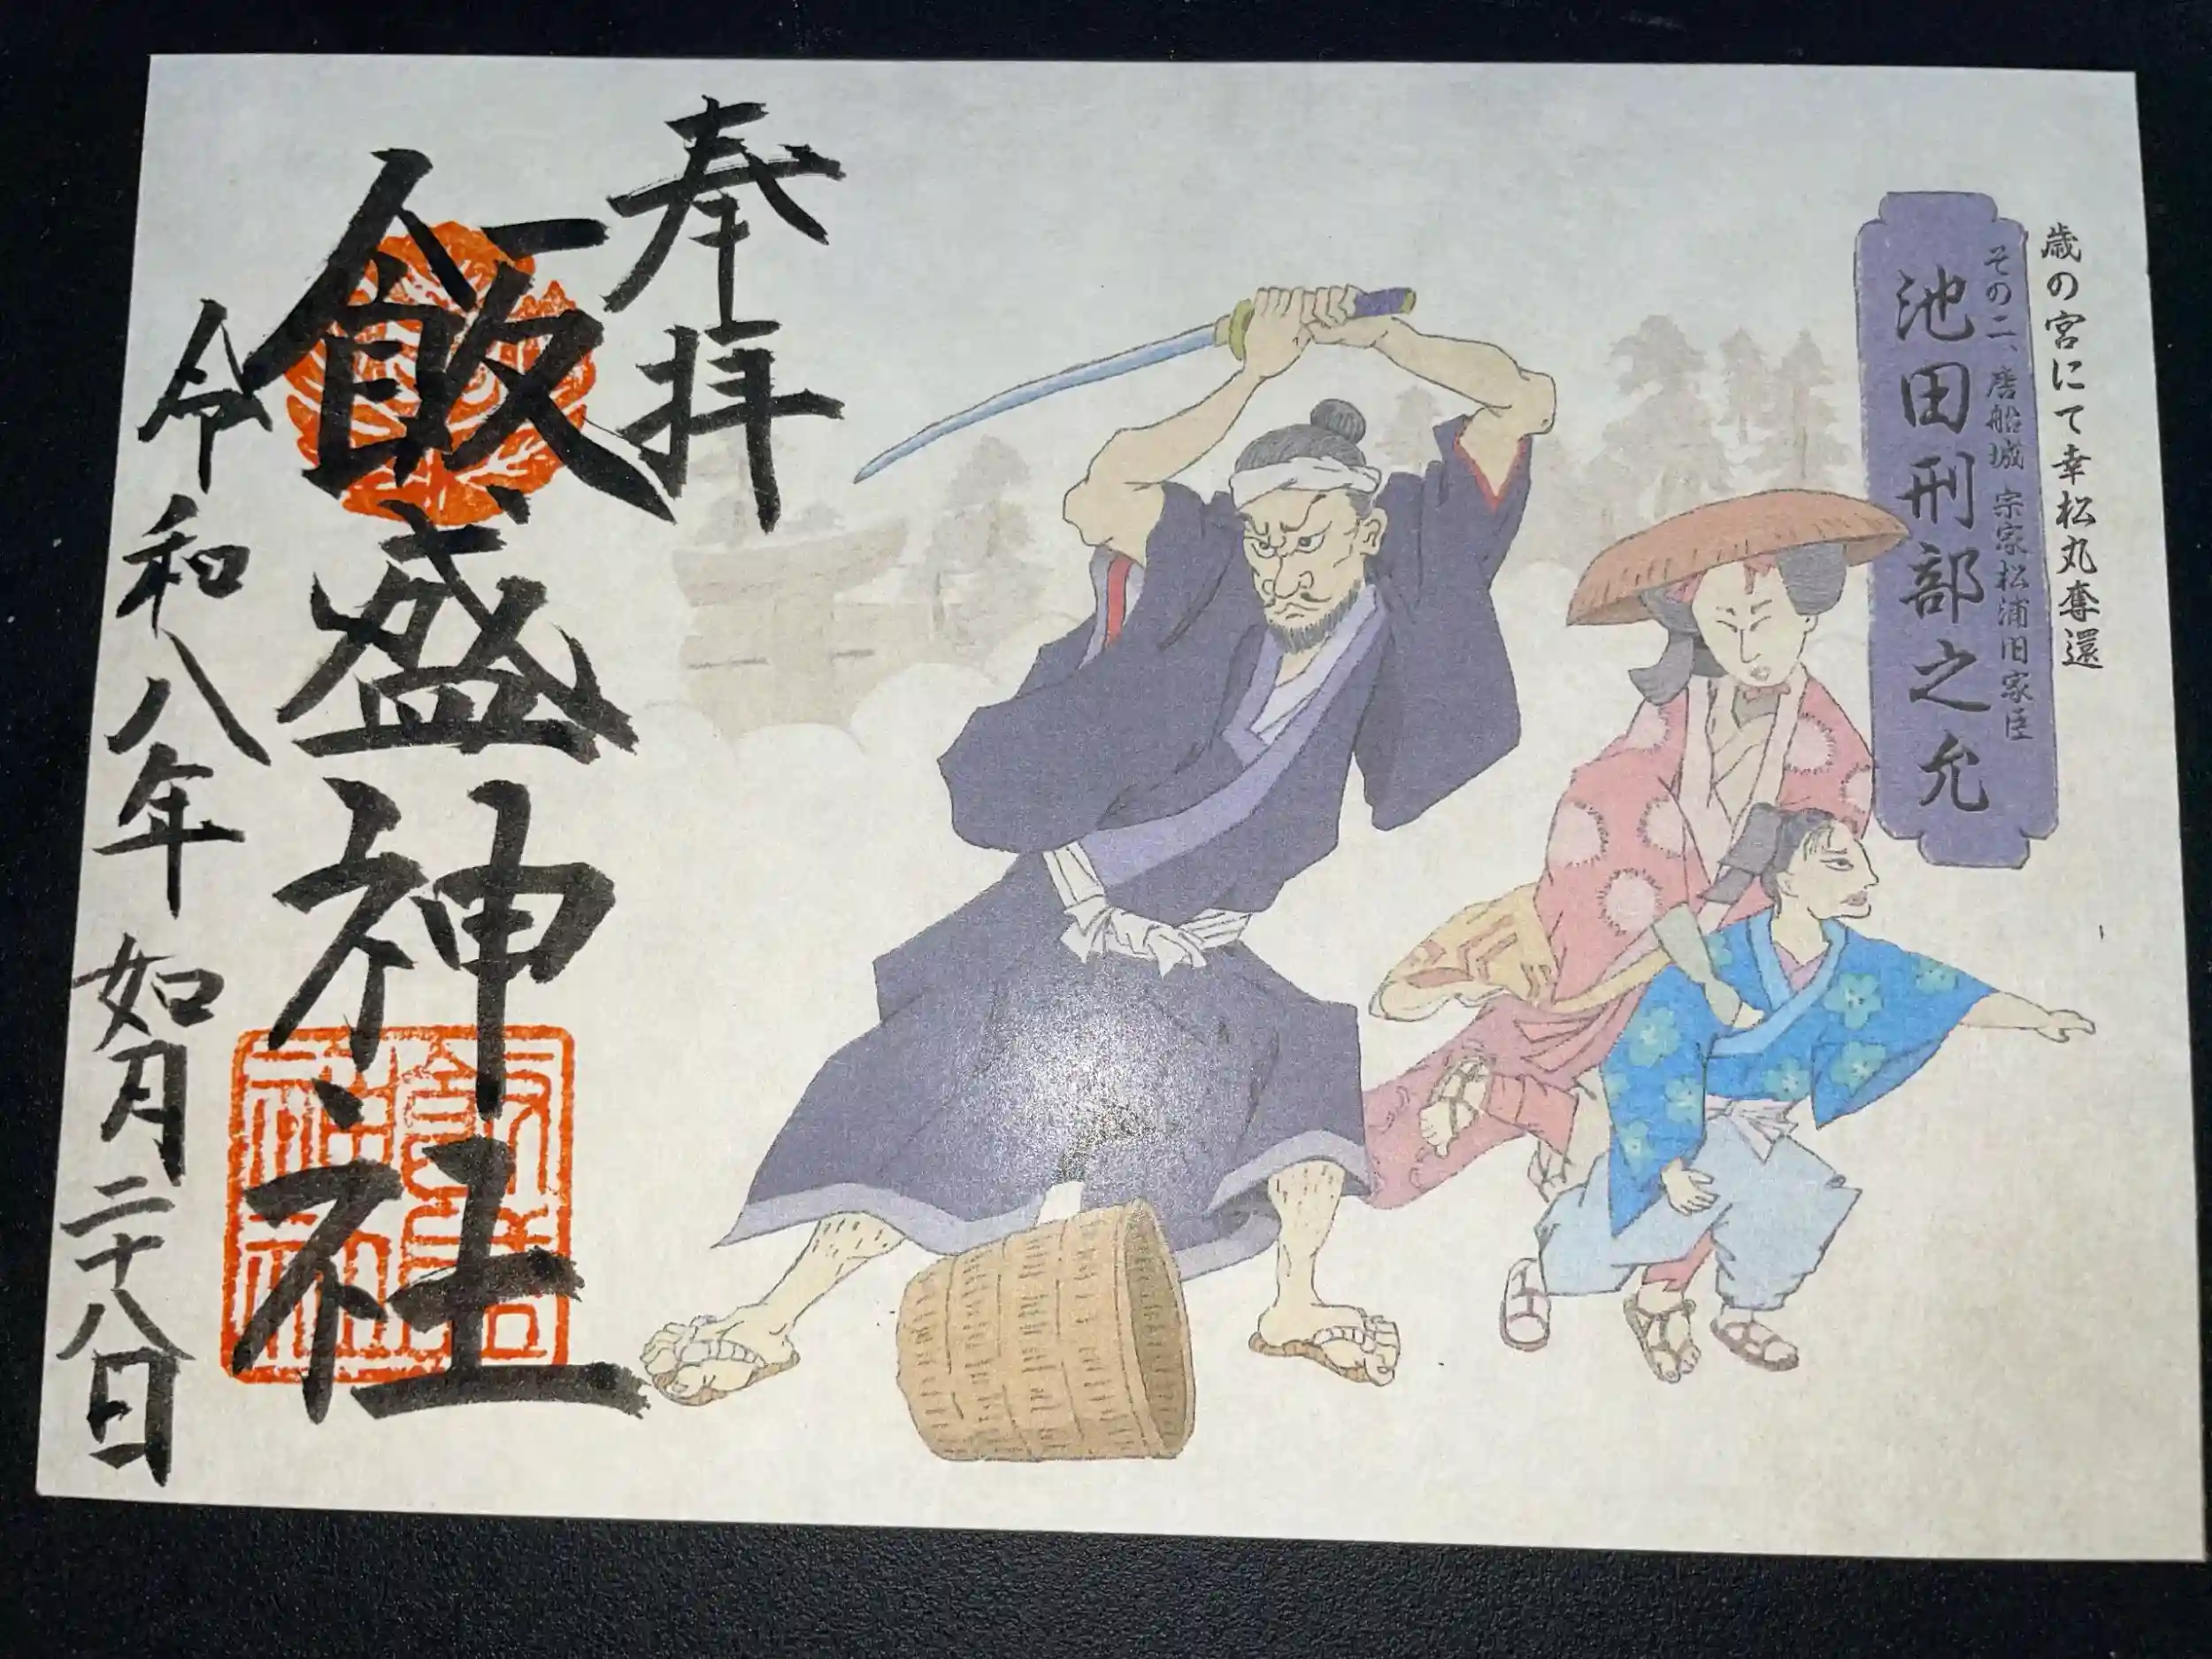 歳の宮にて幸松丸奪還
その二、唐船城 宗家松浦旧家臣
池田刑部之允
奉拝
飯盛神社
令和八年 如月二十八日